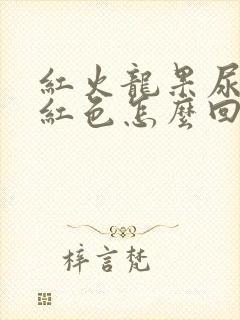 紅火龍果尿
紅色怎麼回
梓言梵